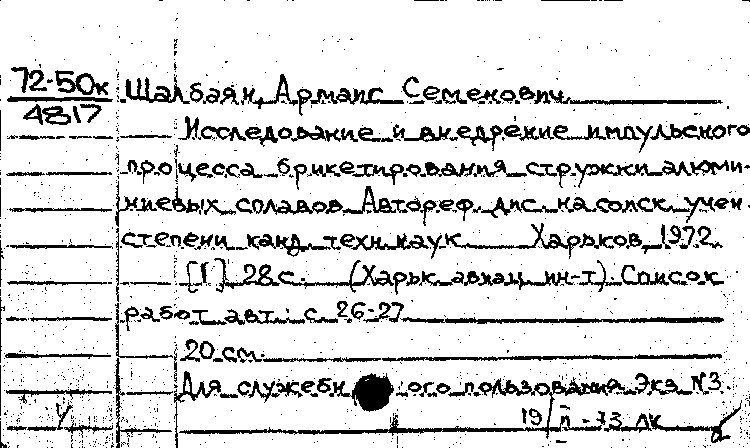 72-50к
4817
Шалбаян, Арманс Семенович
Исследование и внедрение импульсного
процесса брикетирования стружки алюми-
ниевых сплавов Автореф. дис. на соиск. учен.
степени канд. техн. наук Харьков, 1972
[1] 28 с. (Харьк. авиац. ин-т). Список
работ авт.: с. 26-27
20 см.
Для служебн ого пользования Экз N3.
19/II - 73 ЛК